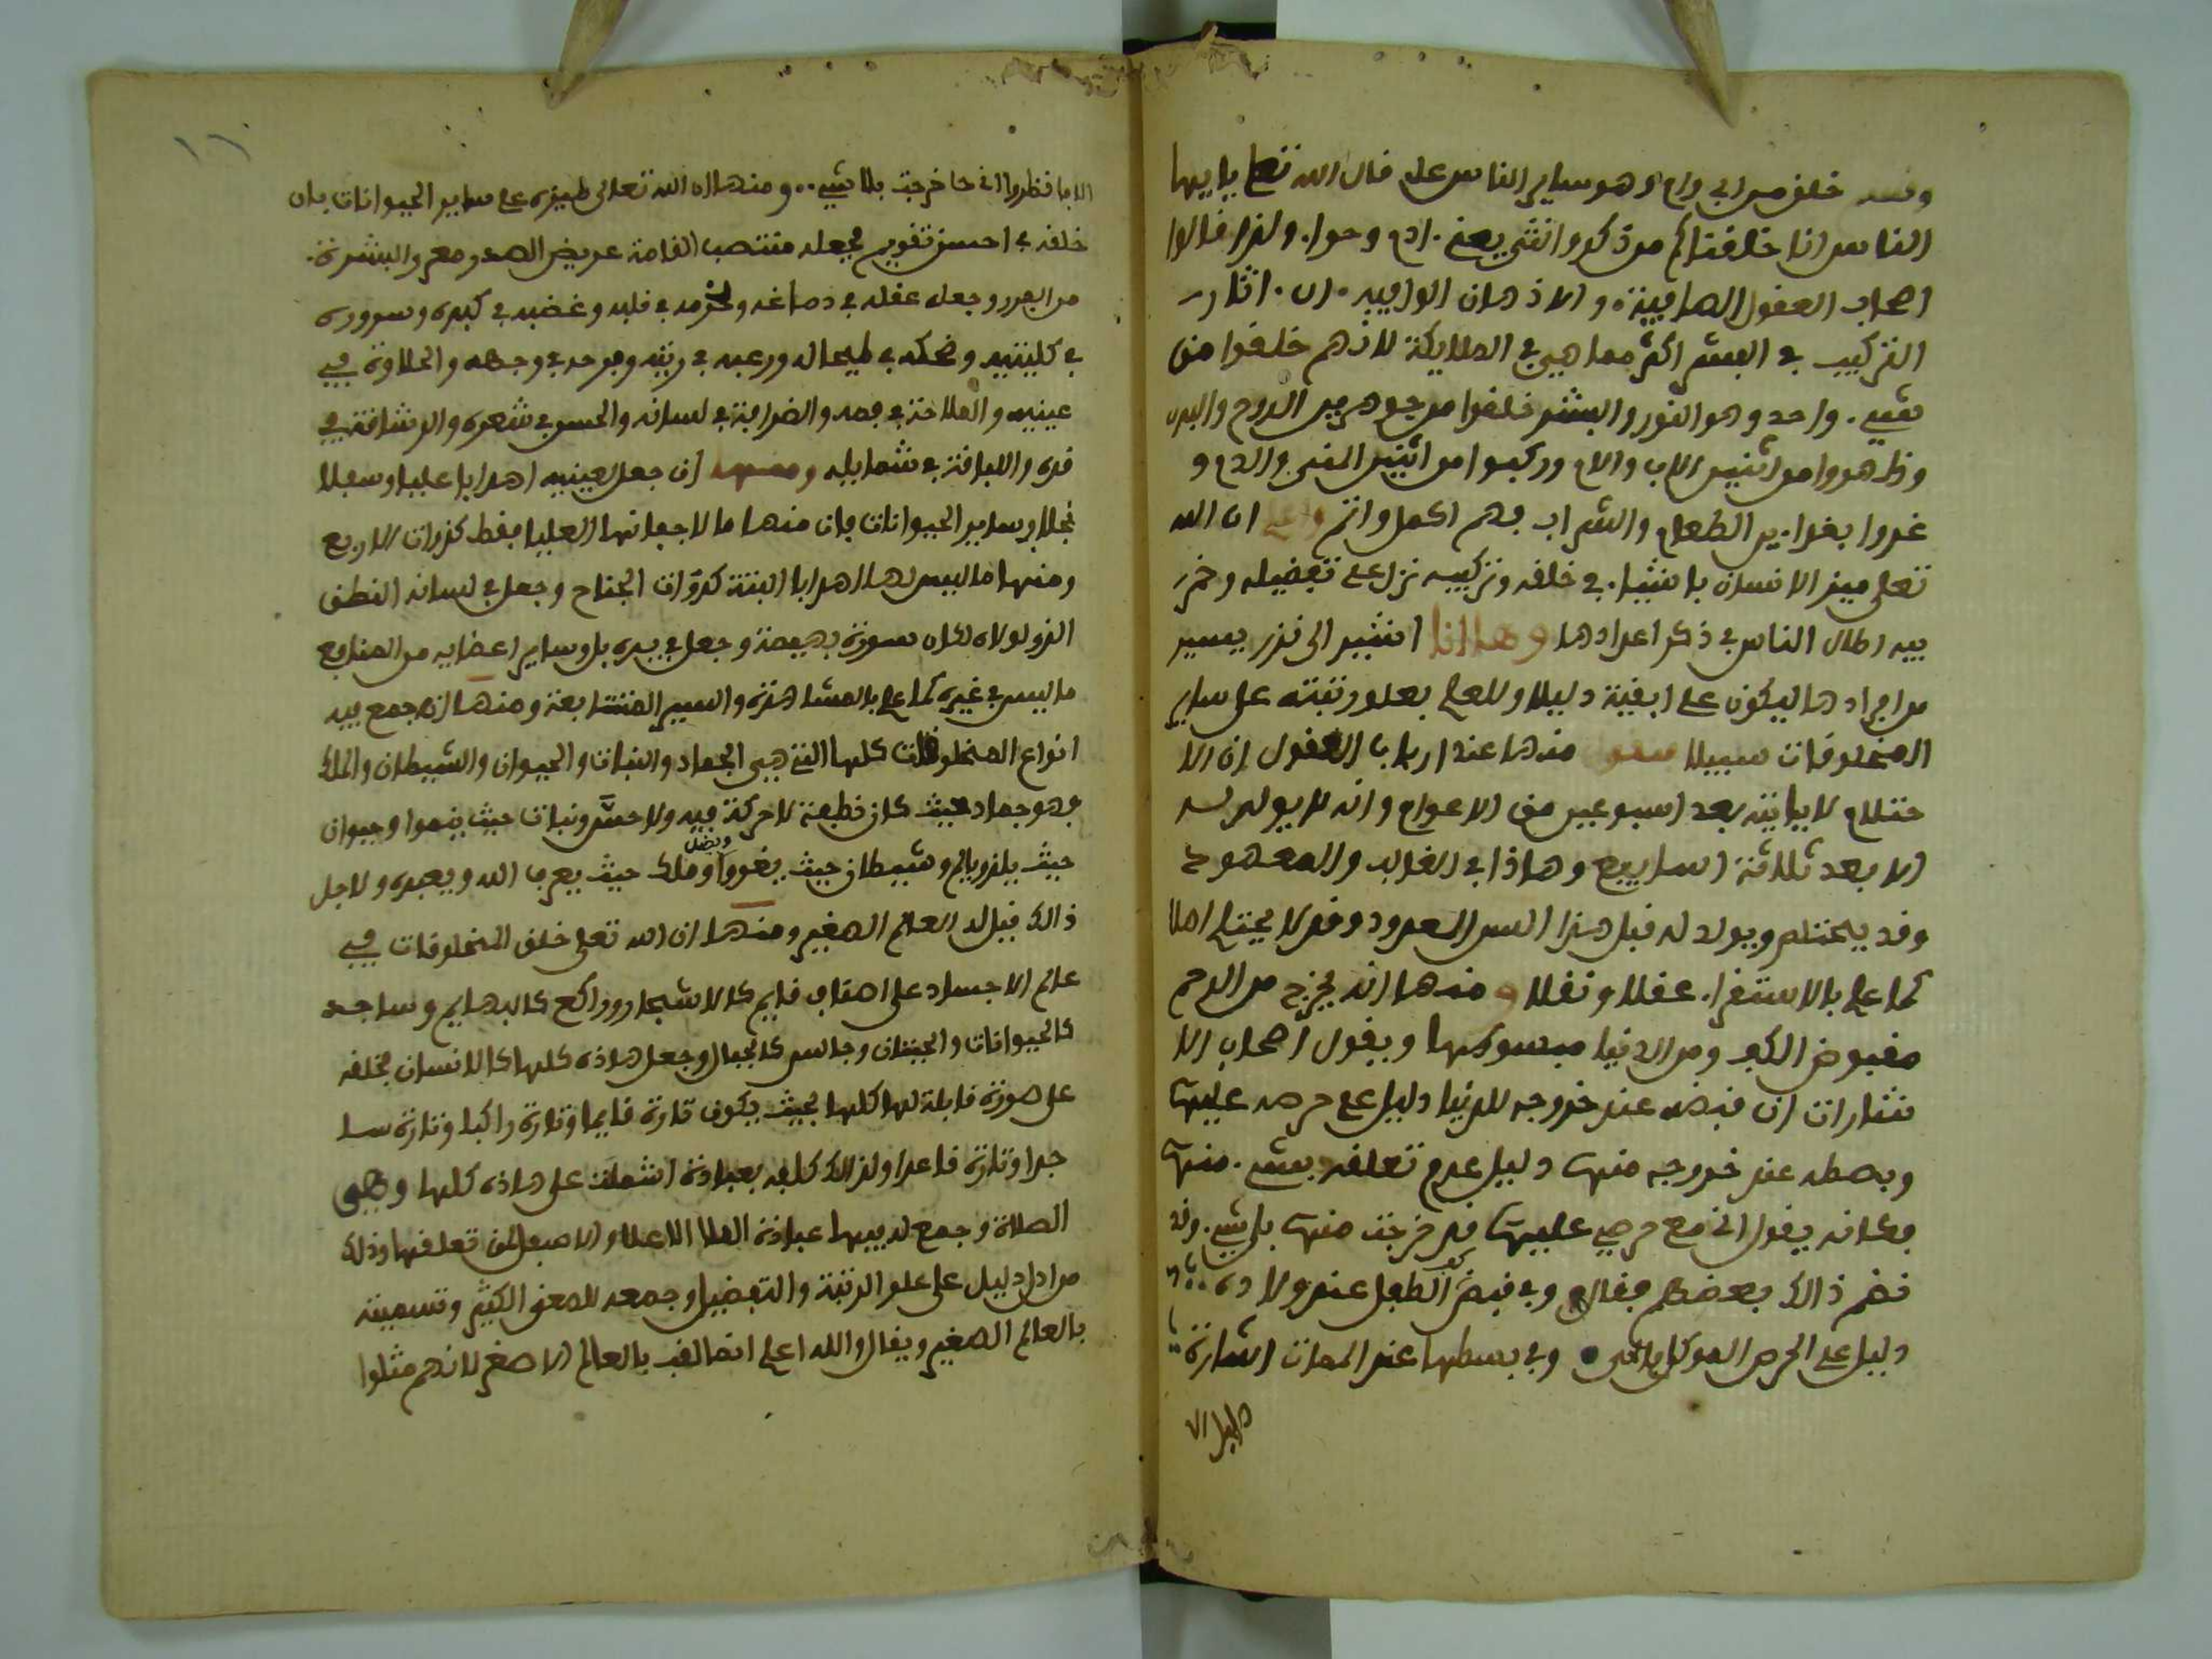 وقسم خلق من اب وام وهو ساير الناس على قال الله تعلى يا ايها
الناس انا خلقناكم من ذكر وانثى يعني ادم وحوا. ولهذا قالوا
اصحاب العقول الصافية. والاذهان الوافية. ان. اثار
التركيب في البشر اكثر مما هي في الملايكة لانهم خلقوا من
شيء. واحد وهو النور والبشر خلقوا من جوهرين الروح والبدن
وظهروا من اثنين الاب والام وركبوا من اثنين المني والدم و
غدوا بغداين الطعام والشراب فهم اكمل واتم واعلم ان الله
تعلى ميز الانسان باشيا. في خلقه وتركيبه تدل على تفضيله وخمر
فيه اطال الناس في ذكر اعدادها وها انا اشير الى نزر يسير
من افرادها ليكون على ابقية دليلا وللعلم بعلو رتبته على ساير
المخلوقات سبيلا فنقول منها عند ارباب العقول ان الا
حتلام لا ياتيه بعد اسبوعين من الاعوام وانه لا يولد له
الا بعد ثلاثة اسابيع وهاذا في الغالب والمعهود
وقد يحتلم ويولد له قبل هذا السن المعدود وقد لا يحتلم اصلا
كما علم بالاستقرا. عقلا ونقلا ومنها انه يخرج من الرحم
مقبوض الكف ومن الدنيا مبسوطها ويقول اصحاب الا
شارات ان قبضه عند خروجه للدنيا دليل على حرصه عليها
وبسطه عند خروجه منها دليل عدم تعلقه بشيء. منها
فكانه يقول اني مع حرصي عليها قد خرجت منها بلا شيء. وقد
نضم ذالك بعضهم فقال وفي قبض كف الطفل عند ولاده
دليل على الحرص الموكل بالحي وفي بسطها عند الممات اشارة
الا فانظروا اني خرجت بلا شيء.. ومنها ان الله تعلى ميزه على ساير الحيوانات بان
خلقه في احسن تقويم فجعله منتصب القامة عريض الصدر معر والبشرة.
من الجرد وجعل عقله في دماغه وحزمه في قلبه وغضبه في كبده وسروره
في كليتيه وضحكه في طيحاله ورعبه في ريته وفرحه في وجهه والحلاوة في
عينيه والملاحة في فمه والضرافة في لسانه والحسن في شعره والرشاقة في
قده واللباقة في شمايله ومنها ان جعل لعينيه اهدابا عليا وسفلا
بخلاف ساير الحيوانات فان منها ما لاجفانها العليا فقط كذوات الاربع
ومنها ما ليس لها اهدابا البتة كذوات الجناح وجعل في لسانه النطق
الذي لولاه لكان سورة بهيمة وجعل في يده بل وساير اعضايه من المنافع
ما ليس في غيره كما علم بالمشاهدة والسير المتتابعة ومنها انه جمع فيه
انواع المخلوقات كلها التي هي الجماد والنبات والحيوان والشيطان والملك
فهو جماد حيث كان نطفة لا حركة فيه ولا حس ونبات حيث ينموا وحيوان
حيث يلذ ويالم وشيطان حيث يغووا ويضل وملك حيث يعرف الله ويعبده ولاجل
ذالك قيل له العالم الصغير ومنها ان الله تعلى خلق المخلوقات في
عالم الاجساد على اصناف قايم كالاشجار وراكع كالبهايم وساجد
كالحيوانات والحيتان وجالس كالجبال وجعل هاذه كلها كالانسان فخلقه
على صورة قابلة لها كلها بحيث يكون تارة قايما وتارة راكبا وتارة سا
جدا وتارة قاعدا ولذالك كلفه بعبادة اشملت على هاذه كلها وهي
الصلاة وجمع له فيها عبادة الملا الاعلا والاسفل لمن تعلقها وذلك
من ادل دليل على علو الرتبة والتفضيل وجمعه للمعنى الكثير وتسميته
بالعالم الصغير ويقال والله اعلم انما لقب بالعالم الاصغر لانهم مثلوا